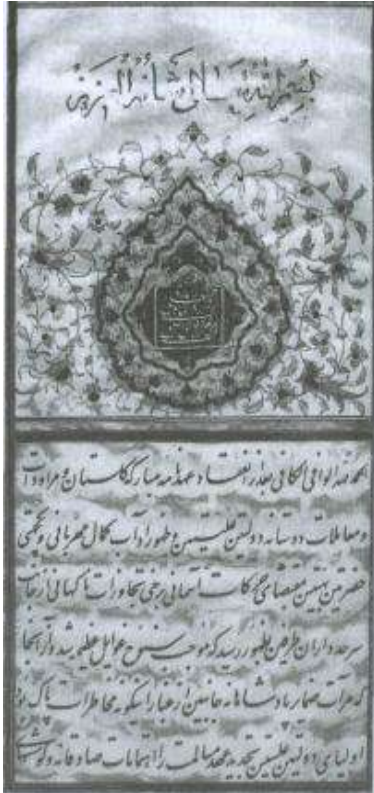 بسم الله تعالی شانه العزیز
الحمد لله الوافی الکافی بعد از انعقاد عهدنامه مبارکه گلستان و مراودات
و معاملات دوستانه دولتین علیتین و ظهور آداب کمال مهربانی و یکجهتی
حضرتین بهیتین بمقتضای حرکات آسمانی برخی تجاوزات ناگهانی از جانب
سرحدداران طرفین بظهور رسید که موجب سنوح غوایل عظیمه شد و از آنجا
که مرآت ضمایر پادشاهانه جانبین از غبار اینگونه مخاطرات پاک بود
اولیای دولتین علیتین تجدید عهد مسالمت را اهتمامات صادقانه و کوششهای